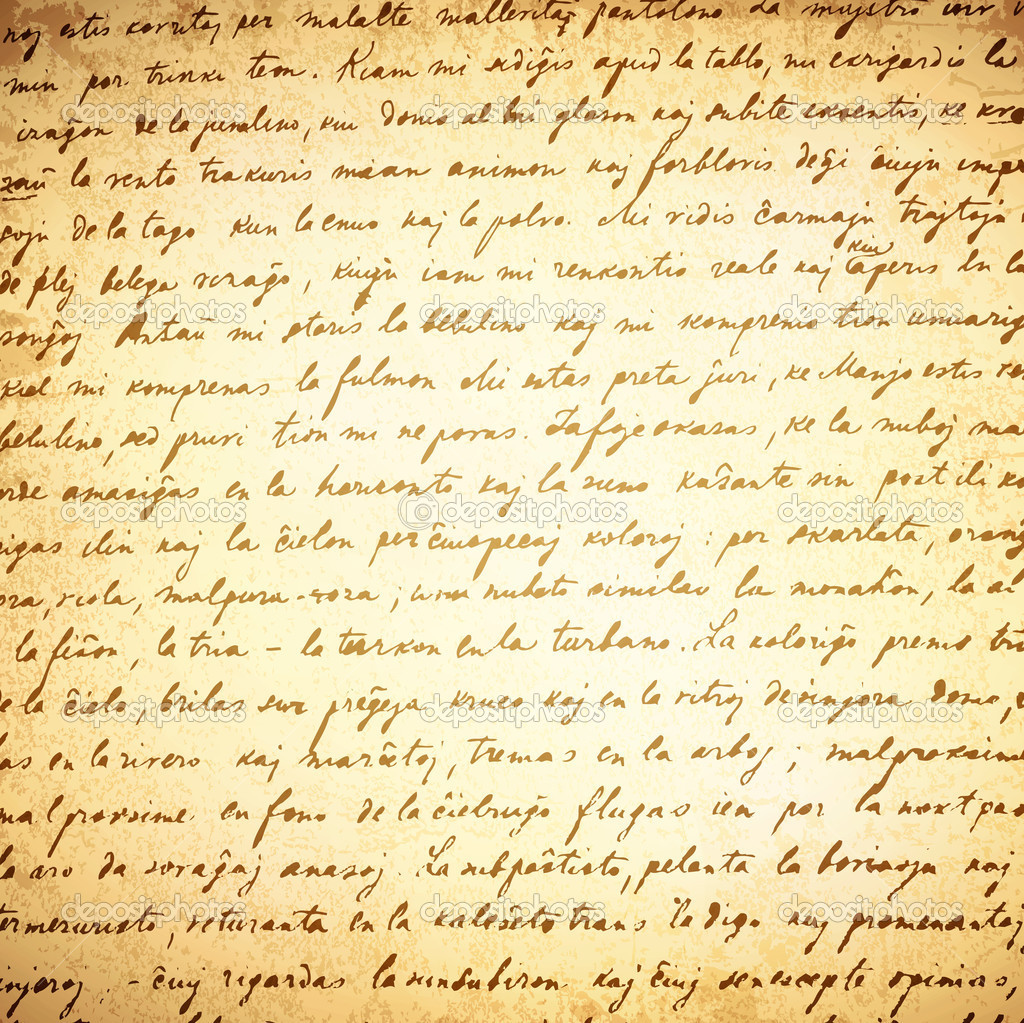 noj estis korutaj per malalte
min por trinki teon. Kiam mi sidiĝis apud la tablo, mi ekrigardis la
izaĝon de la junulino, kiu donis al mi glason kaj subite eksentis, ke
la vento trakuris mian animon kaj forbloris deĝi ĉiujn impr
sojn de la tago kun la enuo kaj la polvo. Mi vidis ĉarmajn trajtojn
de plej belega vizaĝo, kiujn iam mi renkontis reale kaj kiu aperis en la
sonĝoj Antaŭ mi staris la belulino kaj mi komprenis tion unuavig
kiel mi komprenas la fulmon Mi estas preta ĵuri, ke Manjo estis
belulino, sed pruvi tion mi ne povas. Iafoje okazas, ke la nuboj
orde amasiĝas en la horizonto kaj la suno kaŝante sin post ili ko
rigas ilin kaj la ĉielon per ĉiuspecaj koloroj : per skarlata, oranĝ
ora, viola, malpura-roza ; unu nubeto similas la monaĥon, la al
la fiŝon, la tria - la turkon en la turbano. La koloriĝo
de la ĉielo, brilas sur preĝeja kruco kaj en la vitroj de sinjora domo,
as en la rivero kaj marĉetoj, tremas en la arboj ; malproksime
malproksime en fono de la ĉielruĝo flugas ien por la noktpas
la aro da sovaĝaj anasoj. La subpaŝtisto, pelanta la bovinojn kaj
termezuristo, veturanta en la kaleŝeto trans la digo kaj promenantaj
injoroj, - ĉiuj rigardas la sunsubiron kaj ĉiuj senescepte opinias,
depositphotos